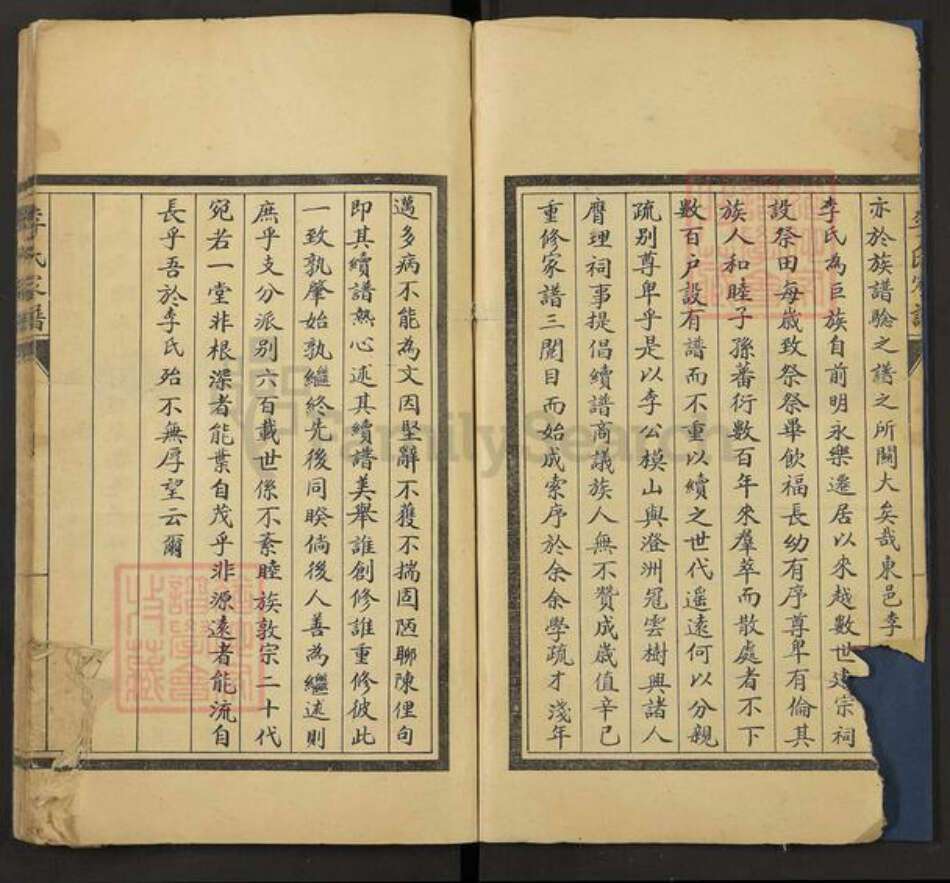 亦於族譜驗之譜之所關大矣哉東邑李
李氏為巨族自前明永樂遷居以來越數世建宗祠
設祭田每歲致祭祭畢飲福長幼有序尊卑有倫其
族人和睦子孫蕃衍數百年來羣萃而散處者不下
數百戶設有譜而不重以續之世代遥遠何以分親
疏別尊卑乎是以李公模山與澄洲冠雲樹興諸人
膺理祠事提倡續譜商議族人無不贊成歲值辛巳
重修家譜三閱月而始成索序於余余學疏才淺年
邁多病不能為文因堅辭不獲不揣固陋聊陳俚句
即其續譜熱心述其續譜美舉誰創修誰重修彼此
一致孰肇始孰繼終先後同暌倘後人善為繼述則
庶乎支分派别六百載世係不紊睦族敦宗二十代
宛若一堂非根深者能葉自茂乎非源遠者能流自
長乎吾於李氏殆不無厚望云爾
李氏家譜
FamilySearch